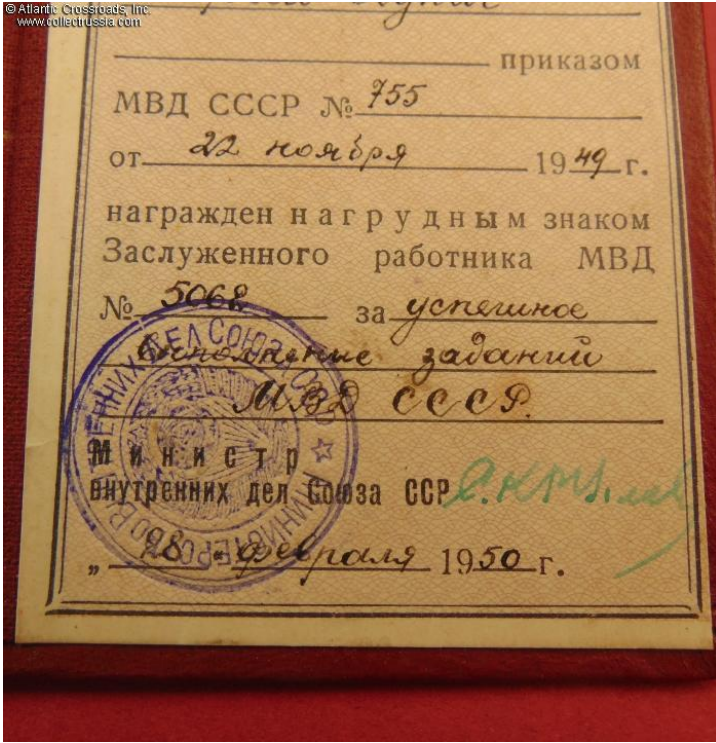 © Atlantic Crossroads, Inc.
www.collectrussia.com
приказом
МВД СССР № 755
от 22 ноября 1949 г.
награжден нагрудным знаком
Заслуженного работника МВД
№ 5068 за успешное
выполнение заданий
МВД СССР.
Министр
внутренних дел Союза ССР
„ 28 " февраля 1950 г.